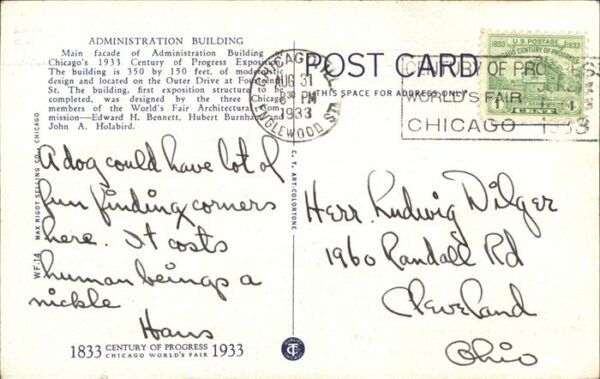 ADMINISTRATION BUILDING
Main facade of Administration Building
Chicago's 1933 Century of Progress Exposition.
The building is 350 by 150 feet, of modernistic
design and located on the Outer Drive at Fourteenth
St. The building, first exposition structure
completed, was designed by the three Chicago
members of the World's Fair Architectural Com
mission—Edward H. Bennett, Hubert Burnham and
John A. Holabird.
A dog could have lot of
fun finding corners
here. It costs
human beings a
nickle
Hans
1833 CENTURY OF PROGRESS 1933
CHICAGO WORLD'S FAIR
WF.14 MAX RIGOT SELLING CO., CHICAGO
C. T. ART-COLORTONE
POST CARD
THIS SPACE FOR ADDRESS ONLY
CHICAGO, ILL.
AUG 31
8 30 PM
1933
ENGLEWOOD STA
CENTURY OF PRO
WORLD'S FAIR
CHICAGO 1933
U.S. POSTAGE
1833 CENTURY OF PROGRESS 1933
Herr Ludwig Dilger
1960 Randall Rd
Cleveland
Ohio